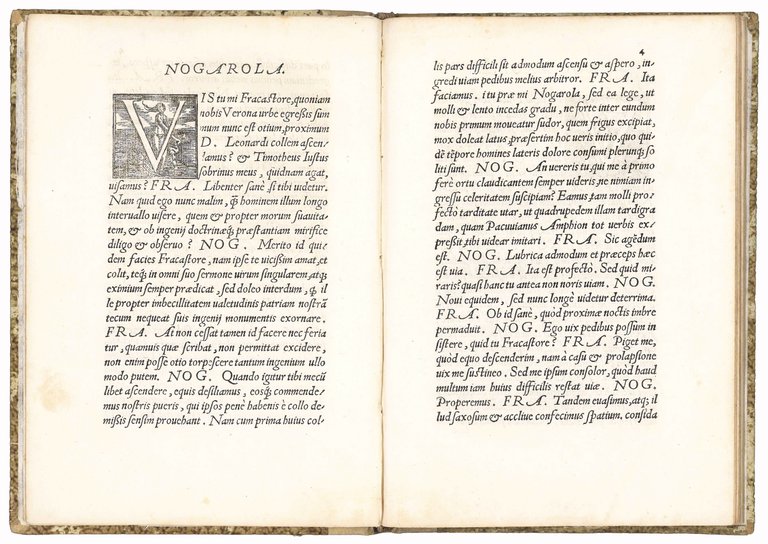 NOGAROLA.
VIS tu mi Fracastore, quoniam
nobis Verona urbe egreßis sum
mum nunc est otium, proximum
D. Leonardi collem ascen-
damus? & Timotheus Iustus
sobrinus meus, quidnam agat,
uisamus? FRA. Libenter sanè si tibi uidetur.
Nam quid ego nunc malim, q̃ hominem illum longo
interuallo uisere, quem & propter morum suauita
tem, & ob ingenij doctrinæq́; præstantiam mirifice
diligo & obseruo? NOG. Merito id qui-
dem facies Fracastore, nam ipse te uicißim amat, et
colit, teq́; in omni suo sermone uirum singularem, atq;
eximium semper prædicat, sed doleo interdum, q̃ il
le propter imbecillitatem ualetudinis patriam nostrã
tecum nequeat suis ingenij monumentis exornare.
FRA. At non cessat tamen id facere nec feria
tur, quamuis quæ scribat, non permittat excidere,
non enim posse otio torpescere tantum ingenium ullo
modo putem. NOG. Quando igitur tibi mecũ
libet ascendere, equis desiliamus, eosq́; commende-
mus nostris pueris, qui ipsos penè habenis è collo de-
mißis sensim prouehant. Nam cum prima huius col-
4
lis pars difficili sit admodum ascensu & aspero, in-
gredi uiam pedibus melius arbitror. FRA. Ita
faciamus. i tu præ mi Nogarola, sed ea lege, ut
molli & lento incedas gradu, ne forte inter eundum
nobis primum moueatur sudor, quem frigus excipiat,
mox doleat latus, præsertim hoc ueris initio, quo qui-
dẽ tẽpore homines lateris dolore consumi plerunq; so
liti sunt. NOG. An uereris tu, qui me à primo
ferè ortu claudicantem semper uideris, ne nimiam in-
gressu celeritatem suscipiam? Eamus, tam molli pro-
fectò tarditate utar, ut quadrupedem illam tardigra
dam, quam Pacuuianus Amphion tot uerbis ex-
preßit, tibi uidear imitari. FRA. Sic agẽdum
est. NOG. Lubrica admodum et præceps hæc
est uia. FRA. Ita est profectò. Sed quid mi-
raris? quasi hanc tu antea non noris uiam. NOG.
Noui equidem, sed nunc longè uidetur deterrima.
FRA. Ob id sanè, quòd proximæ noctis imbre
permaduit. NOG. Ego uix pedibus possum in
sistere, quid tu Fracastore? FRA. Piget me,
quòd equo descenderim, nam à casu & prolapsione
uix me sustineo. Sed me ipsum consolor, quòd haud
multum iam huius difficilis restat uiæ. NOG.
Properemus. FRA. Tandem euasimus, atq; il
lud saxosum & accliue confecimus spatium, consida